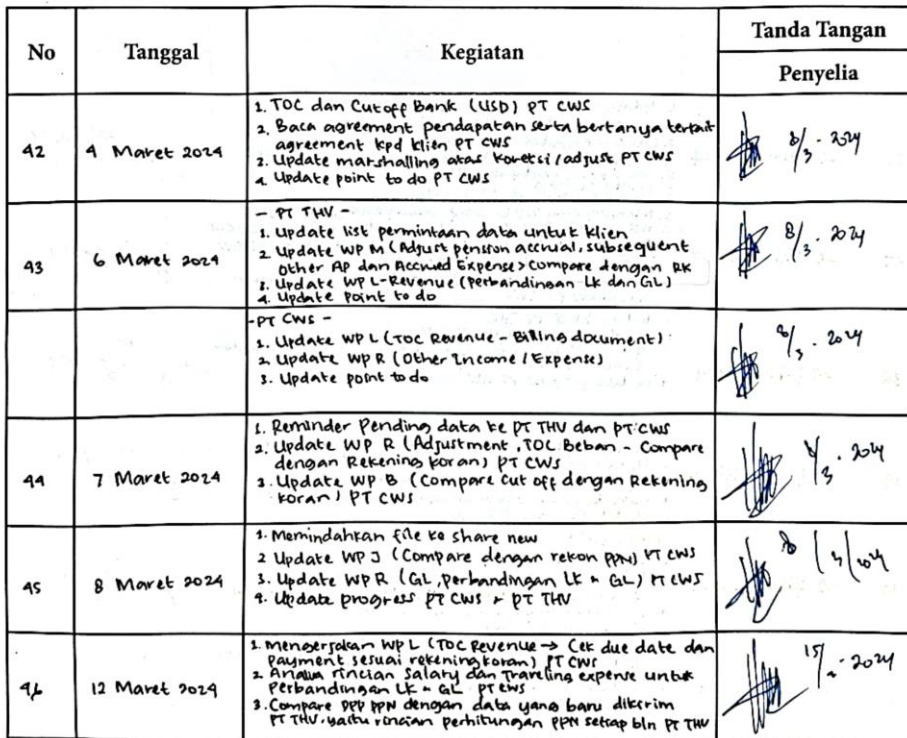 No
Tanggal
Kegiatan
Tanda Tangan
Penyelia
42
4 Maret 2024
1. TOC dan Cutoff Bank (USD) PT CWS
2. Baca agreement pendapatan serta bertanya terkait
agreement kpd klien PT CWS
3. Update marshalling atas koreksi/adjust PT CWS
4. Update point to do PT CWS
8/3 - 2024
43
6 Maret 2024
- PT THV -
1. Update list permintaan data untuk klien
2 Update WP M (Adjust pension accrual, subsequent
Other AP dan Accrued Expense > Compare dengan RK
3. Update WP L-Revenue (perbandingan LK dan GL)
4. Update point to do
8/3 - 2024
- PT CWS -
1. Update WP L (TOC Revenue - Billing document)
2. Update WP R (Other Income / Expense)
3. Update point to do
8/3 - 2024
44
7 Maret 2024
1. Reminder Pending data ke PT THV dan PT CWS
2. Update WP R (Adjustment, TOC Beban - Compare
dengan Rekening koran) PT CWS
3. Update WP B (Compare Cut off dengan Rekening
koran) PT CWS
8/3 - 2024
45
8 Maret 2024
1. Memindahkan file ke share new
2 Update WP J (Compare dengan rekon PPN) PT CWS
3. Update WP R (GL, perbandingan LK & GL) PT CWS
4. Update progress PT CWS & PT THV
8/3/2024
46
12 Maret 2024
1. Mengerjakan WP L (TOC Revenue → Cek due date dan
payment sesuai rekening koran) PT CWS
2. Analisa rincian Salary dan Traveling expense untuk
Perbandingan LK & GL PT CWS
3. Compare DPP PPN dengan data yang baru dikirim
PT THV, yaitu rincian perhitungan PPN setiap bln PT THV
15/ - 2024